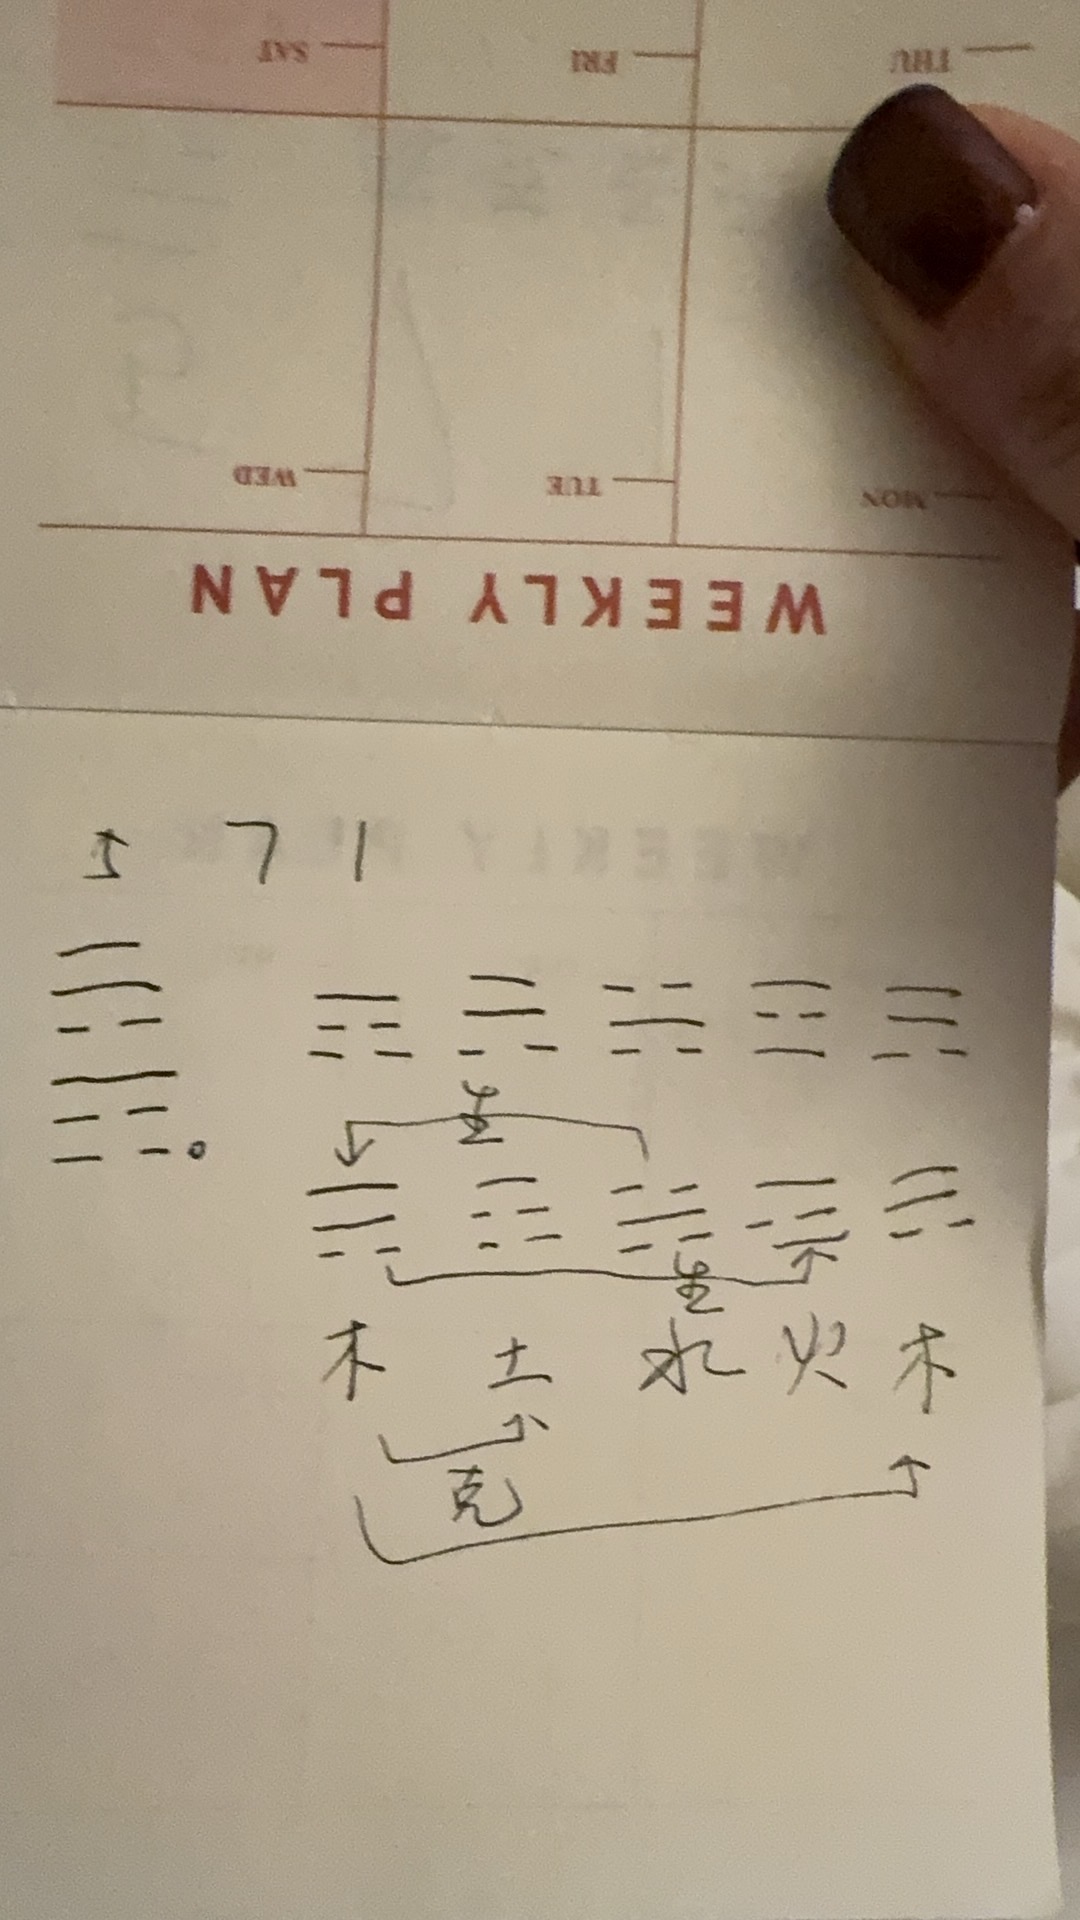 SAT FRI THU
WED TUE MON
WEEKLY PLAN
5 7 1
生
生
木 土 水 火 木
克